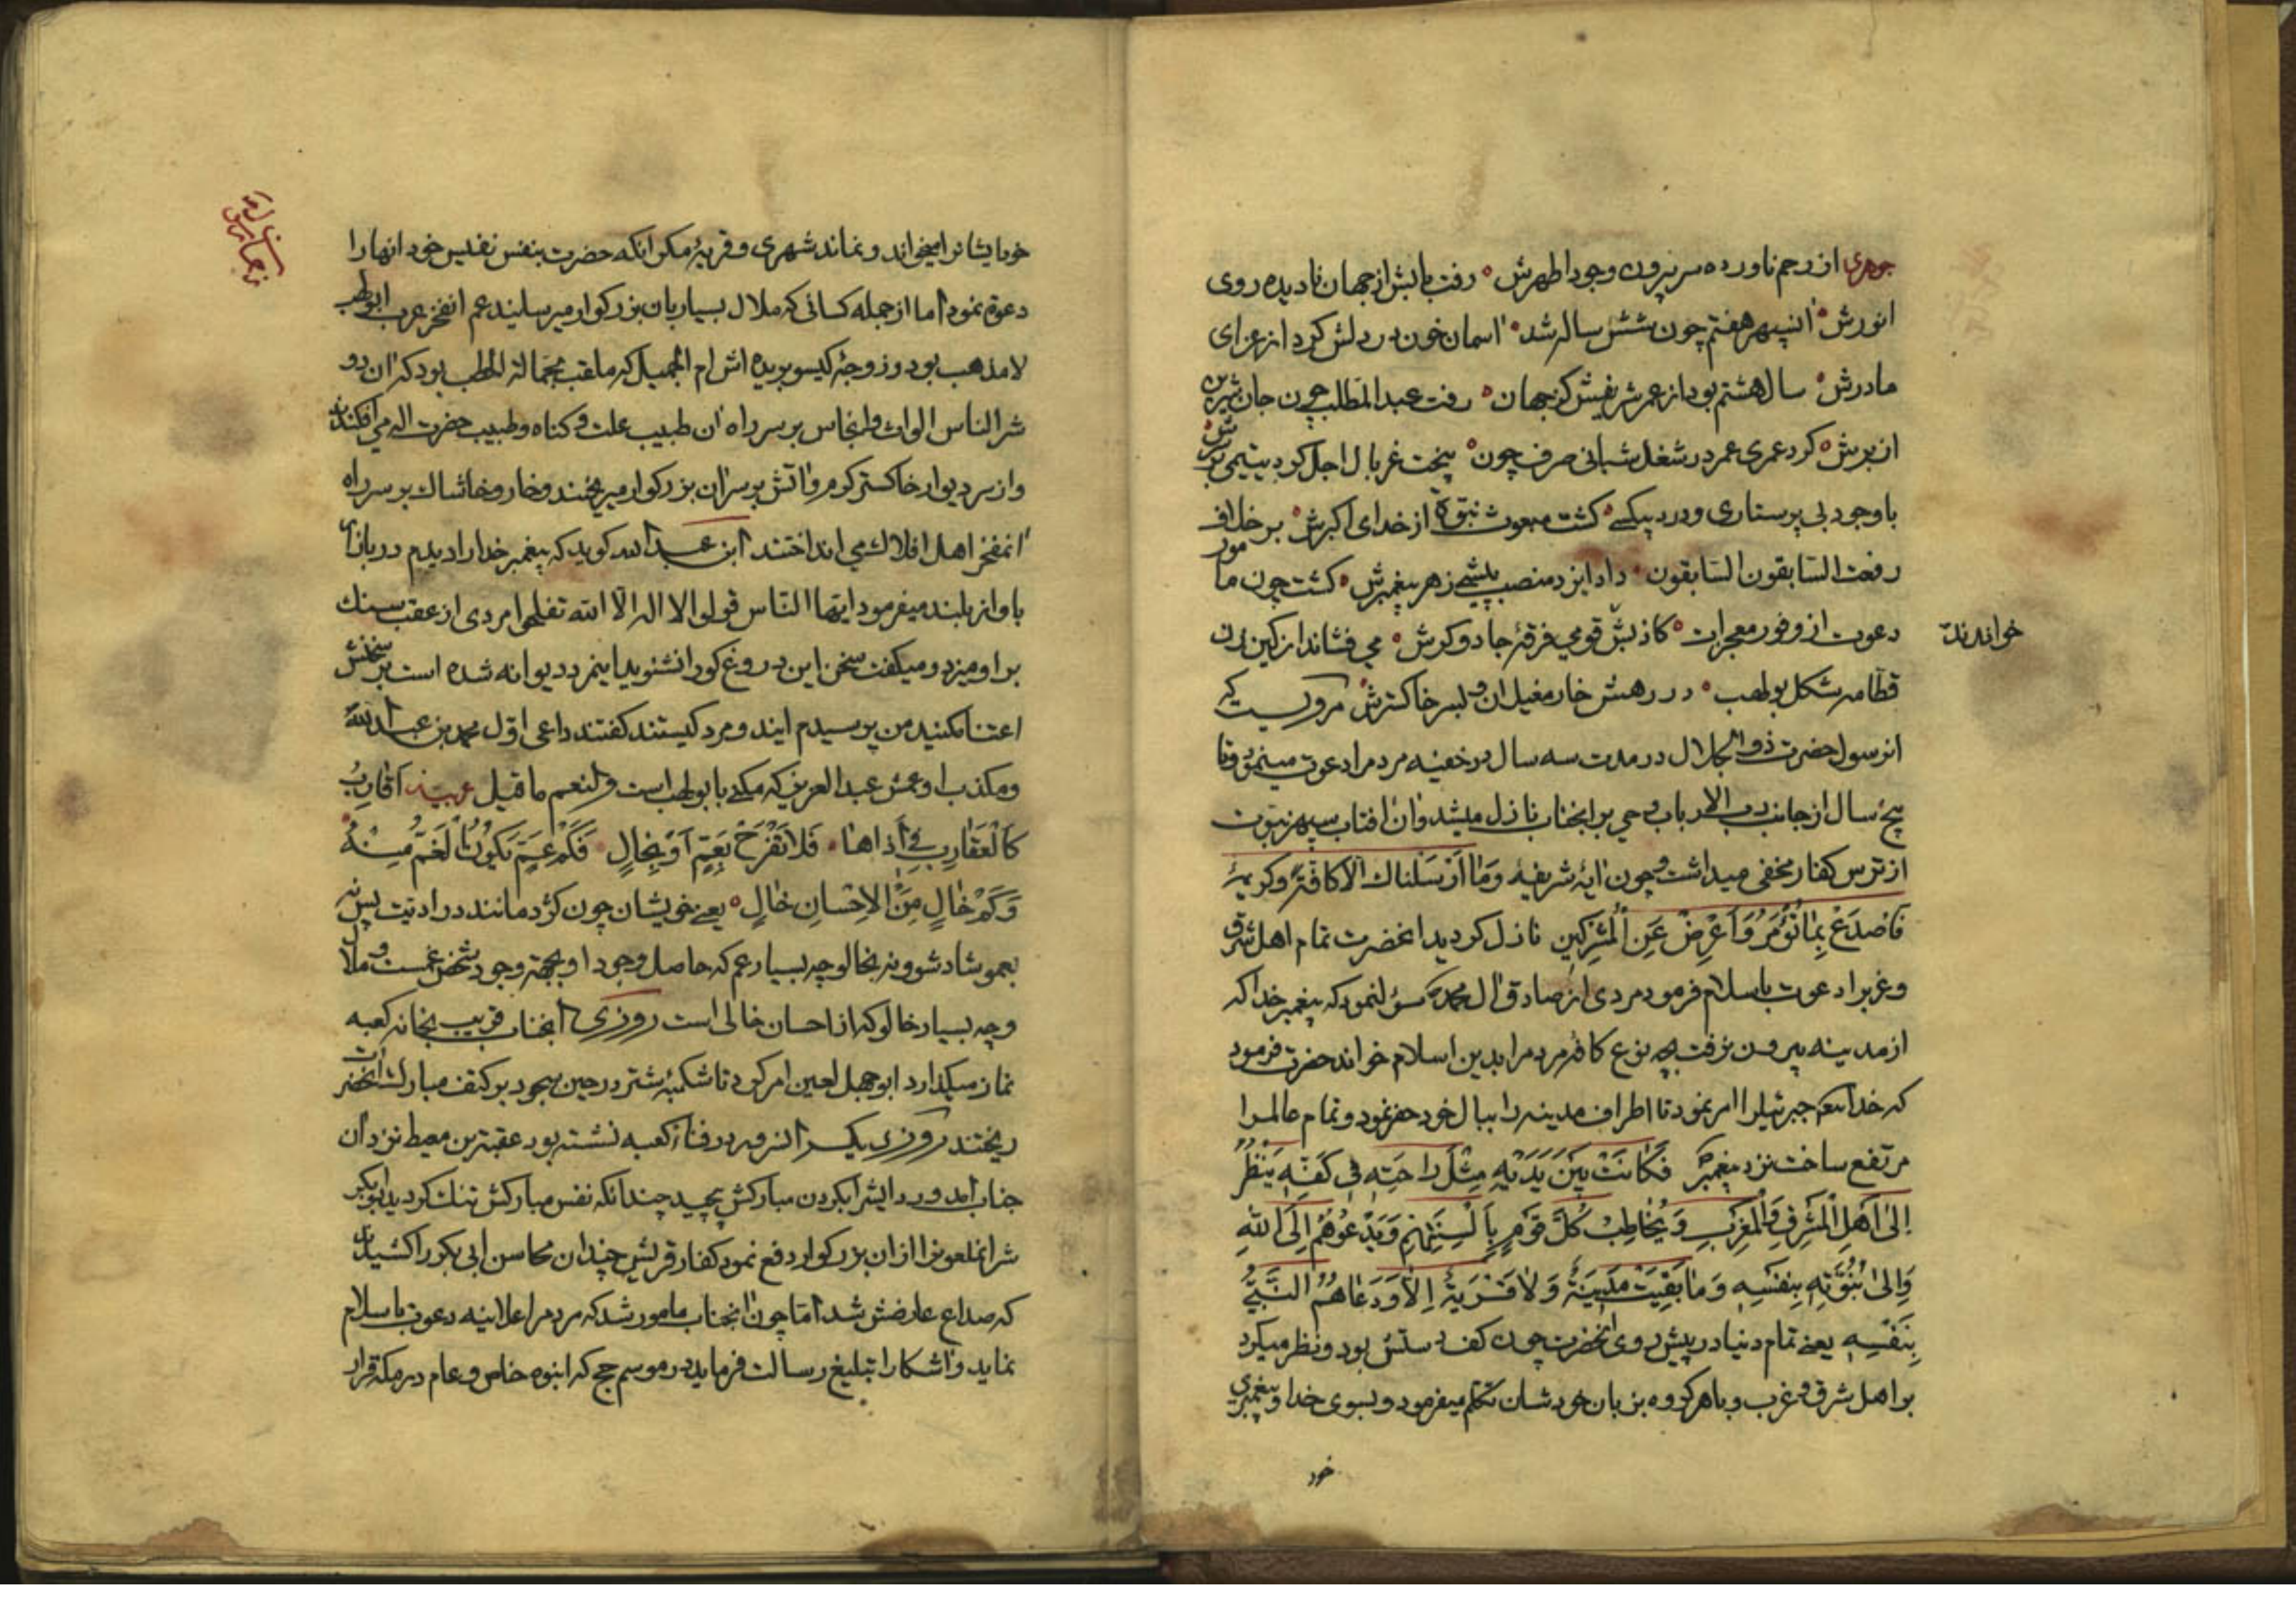 جوهری از رحم ناورده سر بیرون وجود اطهرش رفت بابش از جهان نادیده روی
انورش انسپهر هفتم چون شش ساله شد اسمان خون در دلش کرد از عزای
مادرش سال هشتم بود از عمر شریفش کز جهان رفت عبدالمطلب چون جان شیرین
از برش کرد عمری عمر در شغل شبانی صرف چون بیخت غربال اجل کرد یتیمی بر سرش
باوجود بی پرستاری و درد بیکسی کشت مبعوث نبوة از خدای اکبرش بر خلاف
رفعت السابقون السابقون داد ایزد منصب پیشی ز هر پیغمبرش کشت چون مامور
دعوت از وفور معجزات کاذبش قومی فرقهٔ جادوکرش می فشاند از کین زن
خواندند
قطامه شکل بولهب در رهش خار مغیلان و بسر خاکسترش مرویست که
انرسول حضرت ذوالجلال در مدت سه سال در خفیه مردمرا دعوت مینمود و تا
پنج سال از جانب رب الارباب وحی بر انجناب نازل میشد و ان افتاب سپهر نبوت
از ترس کفار مخفی میداشت و چون ایهٔ شریفه وَمَا اَرْسَلناك الا کافَّة و کریمهٔ
فَاصْدَعْ بِمَا تُؤْمَرُ وَاَعْرِضْ عَنِ الْمُشْرِکینِ نازل کردید انحضرت تمام اهل شرق
و غربرا دعوت باسلام فرمود مردی از صادق ال محمد سؤل نمود که پیغمبر خدا که
از مدینه بیرون نرفت بچه نوع کافهٔ مردمرا بدین اسلام خواند حضرت فرمود
که خدایتعم جبرئیلرا امر نمود تا اطراف مدینه را ببال خود حفر نمود و تمام عالمرا
مرتفع ساخت نزد پیغمبر فَکَانَتْ بَیْنَ یَدَیْهِ مِثْلَ رَاحَتِهِ فی کَفِّهِ یَنْظُرُ
اِلیٰ اَهْلِ الْمَشْرِقِ وَالْمَغْرِبِ وَیُخٰاطِبُ کُلَّ قَوْمٍ بِاَلْسِنَتِهِمْ وَیَدْعُوهُمْ اِلَی اللّٰهِ
وَاِلیٰ نُبُوَّتِهِ بِنَفْسِهِ وَمٰا بَقِیَتْ مَدِینَةٌ وَلاٰ قَرْیَةٌ اِلاّٰ وَدَعٰاهُمُ النَّبِیُّ
بِنَفْسِهِ یعنی تمام دنیا در پیش روی انحضرت چون کف دستش بود و نظر میکرد
بر اهل شرق و غرب و با هر کروه بزبان خودشان تکلم میفرمود و بسوی خدا و پیغمبری
خود
خود ایشانرا میخواند و نماند شهری و قریهٔ مکر انکه حضرت بنفس نفیس خود انها را
دعوة نمود اما از جمله کسانی که ملال بسیار بان بزرکوار میرسانید عم انفخر عرب ابولهب
لا مذهب بود و زوجهٔ کیسو بریده اش ام الجمیل که ملقب بحمالة الحطب بود که ان دو
شر الناس الواث و انجاس بر سر راه ان طبیب علت و کناه و طبیب حضرت اله می افکندند
و از سر دیوار خاکستر کرم و اتش بر سر ان بزرکوار میریختند و خار و خاشاك بر سر راه
انمفخر اهل افلاك می انداختند ابن عبدالله کوید که پیغمبر خدا را دیدم در بازار
باواز بلند میفرمود ایها الناس قولوا لا اله الا الله تفلحوا مردی از عقب سنك
بر او میزد و میکفت سخن این دروغ کو را نشنوید اینمرد دیوانه شده است بر سخنش
اعتنا مکنید من پرسیدم ایندو مرد کیستند کفتند داعی اوّل محمد بن عبدالله
و مکذب او عمش عبدالعزی که مکنی بابولهب است و لنعم ما قیل عربیة اَقارِبُ
کَالْعَقٰارِبِ فی اَذاهٰا فَلاٰ تَفْرَحْ بِعَمٍّ اَوْ بِخٰالٍ فَکَمْ عَمٍّ یَکُونُ الْغَمُّ مِنْهُ
وَکَمْ خٰالٍ مِنَ الاِحْسٰانِ خٰالٍ یعنی خویشان چون کژدمانند در اذیت پس نه
بعمو شاد شو و نه بخالو چه بسیار عم که حاصل وجود او بجهة وجود شخص غمست و ملال
و چه بسیار خالو که از احسان خالی است روزی انجناب قریب بخانه کعبه
نماز میکذارد ابوجهل لعین امر کرد تا شکمبهٔ شتر در حین سجود بر کتف مبارك انحضرت
ریختند روزی یکسر انسرور در فناء کعبه نشسته بود عقبة بن معیط نزد ان
جناب امد و ردایشرا بکردن مبارکش پیچید چندانکه نفس مبارکش تنك کردید ابوبکر
شر انملعونرا از ان بزرکوار دفع نمود کفار قریش چندان محاسن ابی بکر را کشیدند
که صداع عارضش شد اما چون انجناب مامور شد که مردمرا علانیه دعوت باسلام
نماید و اشکارا تبلیغ رسالت فرماید در موسم حج که انبوه خاص و عام در مکه قرار